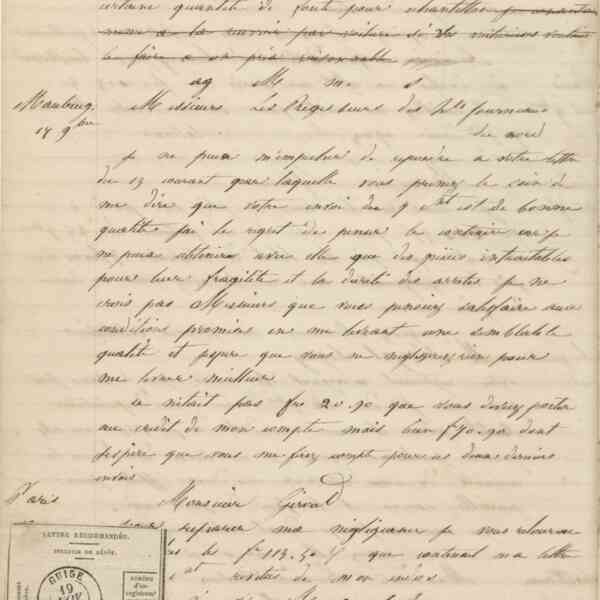 certaine quantité de fonte pour échantillon
mème a la envoir par voiture si des voituriers voulait
le faire a un prix raisonnable
ag M m s
Maubeuge Messieurs Les Régisseurs des hts fourneaux
14 9bre du nord
Je ne puis m'empêcher de répondre a votre lettre
du 13 courant par laquelle vous prenez le soin de
me dire que votre envoi du 9 ct est de bonne
qualité j'ai le regret de penser le contraire car je
ne puis obtenir avec elle que des pièces intraitables
pour leur fragilité et la dureté des arrêtes je ne
crois pas Messieurs que vous pensiez satisfaire aux
conditions promises en me livrant une semblable
qualité et j'espère que vous ne négligerez rien pour
me livrer meilleur
ce n'était pas frs 20.90 que vous deviez porter
au crédit de mon compte mais bien f 70.90 dont
j'espère que vous me ferez compte pour ces deux derniers
envois
Paris Monsieur Giroud
réparer ma négligence je vous retourne
les fr 113.50 que contenait ma lettre
mon
LETTRE RECOMMANDÉE.
BULLETIN DE DÉPÔT.
GUISE
19
NUMÉRO
d'en-
registrement